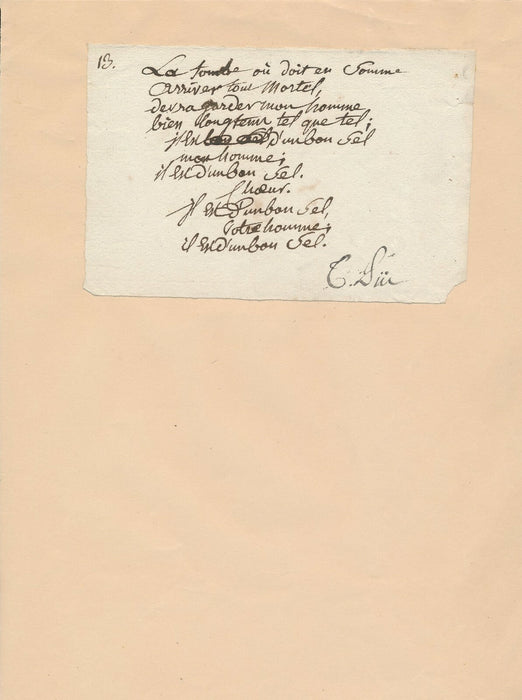 13.
La tombe où doit en somme
Arriver tout Mortel,
devra garder mon homme
bien longtems tel que tel;
il est d'un bon Sel
mon homme;
il est d'un bon Sel.
Chœur.
il est d'un bon Sel,
Votre homme;
il est d'un bon Sel.